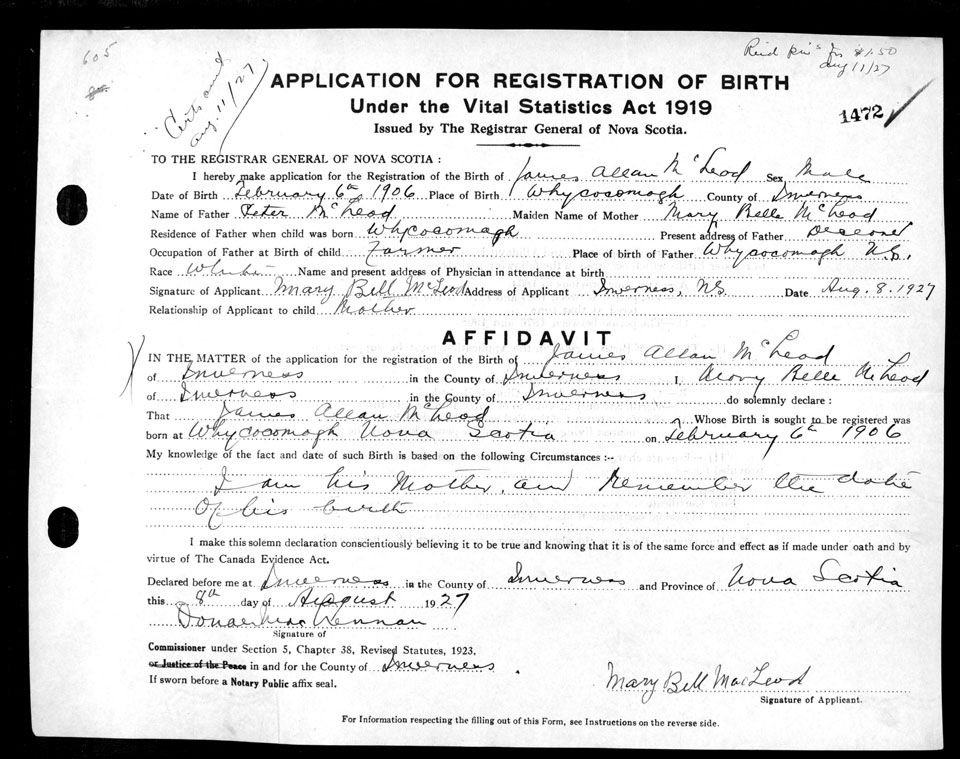 605
Certs and
Aug. 11/27
Aug 11/27
$1.50
APPLICATION FOR REGISTRATION OF BIRTH
Under the Vital Statistics Act 1919
Issued by The Registrar General of Nova Scotia.
1472
TO THE REGISTRAR GENERAL OF NOVA SCOTIA :
I hereby make application for the Registration of the Birth of James Allan McLeod Sex Male
Date of Birth February 6th 1906 Place of Birth Whycocomagh County of Inverness
Name of Father Peter McLeod Maiden Name of Mother Mary Belle McLeod
Residence of Father when child was born Whycocomagh Present address of Father Deceased
Occupation of Father at Birth of child Farmer Place of birth of Father Whycocomagh N.S.
Race White Name and present address of Physician in attendance at birth
Signature of Applicant Mary Bell McLeod Address of Applicant Inverness, NS Date Aug. 8. 1927
Relationship of Applicant to child Mother
AFFIDAVIT
IN THE MATTER of the application for the registration of the Birth of James Allan McLeod
of Inverness in the County of Inverness I, Mary Belle McLeod
of Inverness in the County of Inverness do solemnly declare :
That James Allan McLeod Whose Birth is sought to be registered was
born at Whycocomagh Nova Scotia on February 6th 1906
My knowledge of the fact and date of such Birth is based on the following Circumstances :--
I am his Mother, and remember the date
of his birth
I make this solemn declaration conscientiously believing it to be true and knowing that it is of the same force and effect as if made under oath and by
virtue of The Canada Evidence Act.
Declared before me at Inverness in the County of Inverness and Province of Nova Scotia
this 8th day of August 1927
Signature of
Commissioner under Section 5, Chapter 38, Revised Statutes, 1923.
or Justice of the Peace in and for the County of Inverness
If sworn before a Notary Public affix seal.
Mary Bell MacLeod
Signature of Applicant.
For Information respecting the filling out of this Form, see Instructions on the reverse side.